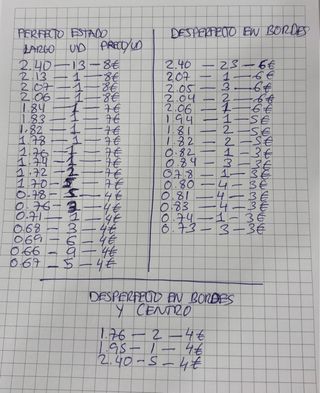 PERFECTO ESTADO
LARGO UD PRECIO/UD
2.40 — 13 — 8€
2.13 — 1 — 8€
2.07 — 1 — 8€
2.06 — 1 — 8€
1.84 — 1 — 7€
1.83 — 1 — 7€
1.82 — 1 — 7€
1.78 — 1 — 7€
1.76 — 1 — 7€
1.74 — 1 — 7€
1.72 — 2 — 7€
1.70 — 5 — 7€
0.78 — 5 — 4€
0.76 — 2 — 4€
0.71 — 1 — 4€
0.68 — 3 — 4€
0.69 — 6 — 4€
0.66 — 9 — 4€
0.67 — 5 — 4€
DESPERFECTO EN BORDES
2.40 — 23 — 6€
2.07 — 1 — 6€
2.05 — 3 — 6€
2.04 — 2 — 6€
2.06 — 1 — 6€
1.94 — 1 — 5€
1.81 — 2 — 5€
1.82 — 2 — 5€
0.82 — 1 — 3€
0.84 — 3 — 3€
0.78 — 1 — 3€
0.80 — 4 — 3€
0.81 — 4 — 3€
0.83 — 4 — 3€
0.74 — 1 — 3€
0.73 — 3 — 3€
DESPERFECTO EN BORDES
Y CENTRO
1.76 — 2 — 4€
1.95 — 1 — 4€
2.40 — 5 — 4€